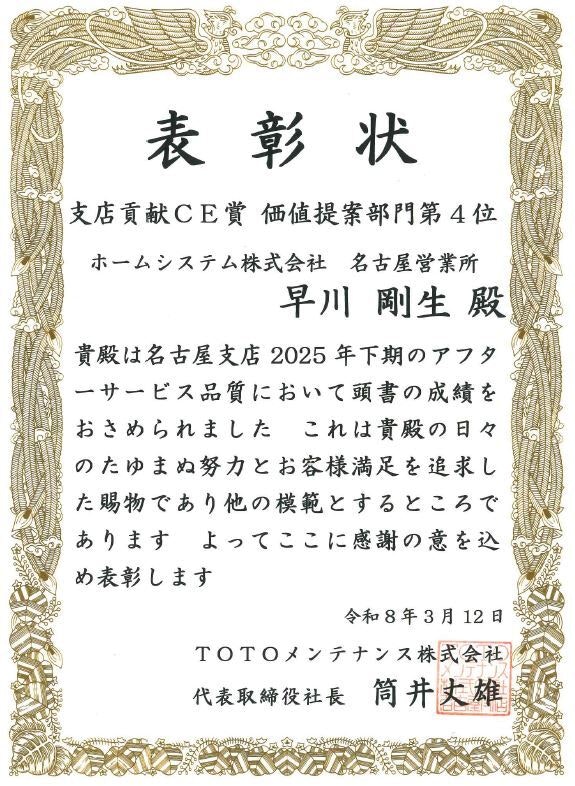 表彰状
支店貢献CE賞 価値提案部門第4位
ホームシステム株式会社 名古屋営業所
早川 剛生 殿
貴殿は名古屋支店2025年下期のアフタ
ーサービス品質において頭書の成績を
おさめられました これは貴殿の日々
のたゆまぬ努力とお客様満足を追求し
た賜物であり他の模範とするところで
あります よってここに感謝の意を込
め表彰します
令和8年3月12日
TOTOメンテナンス株式会社
代表取締役社長 筒井丈雄